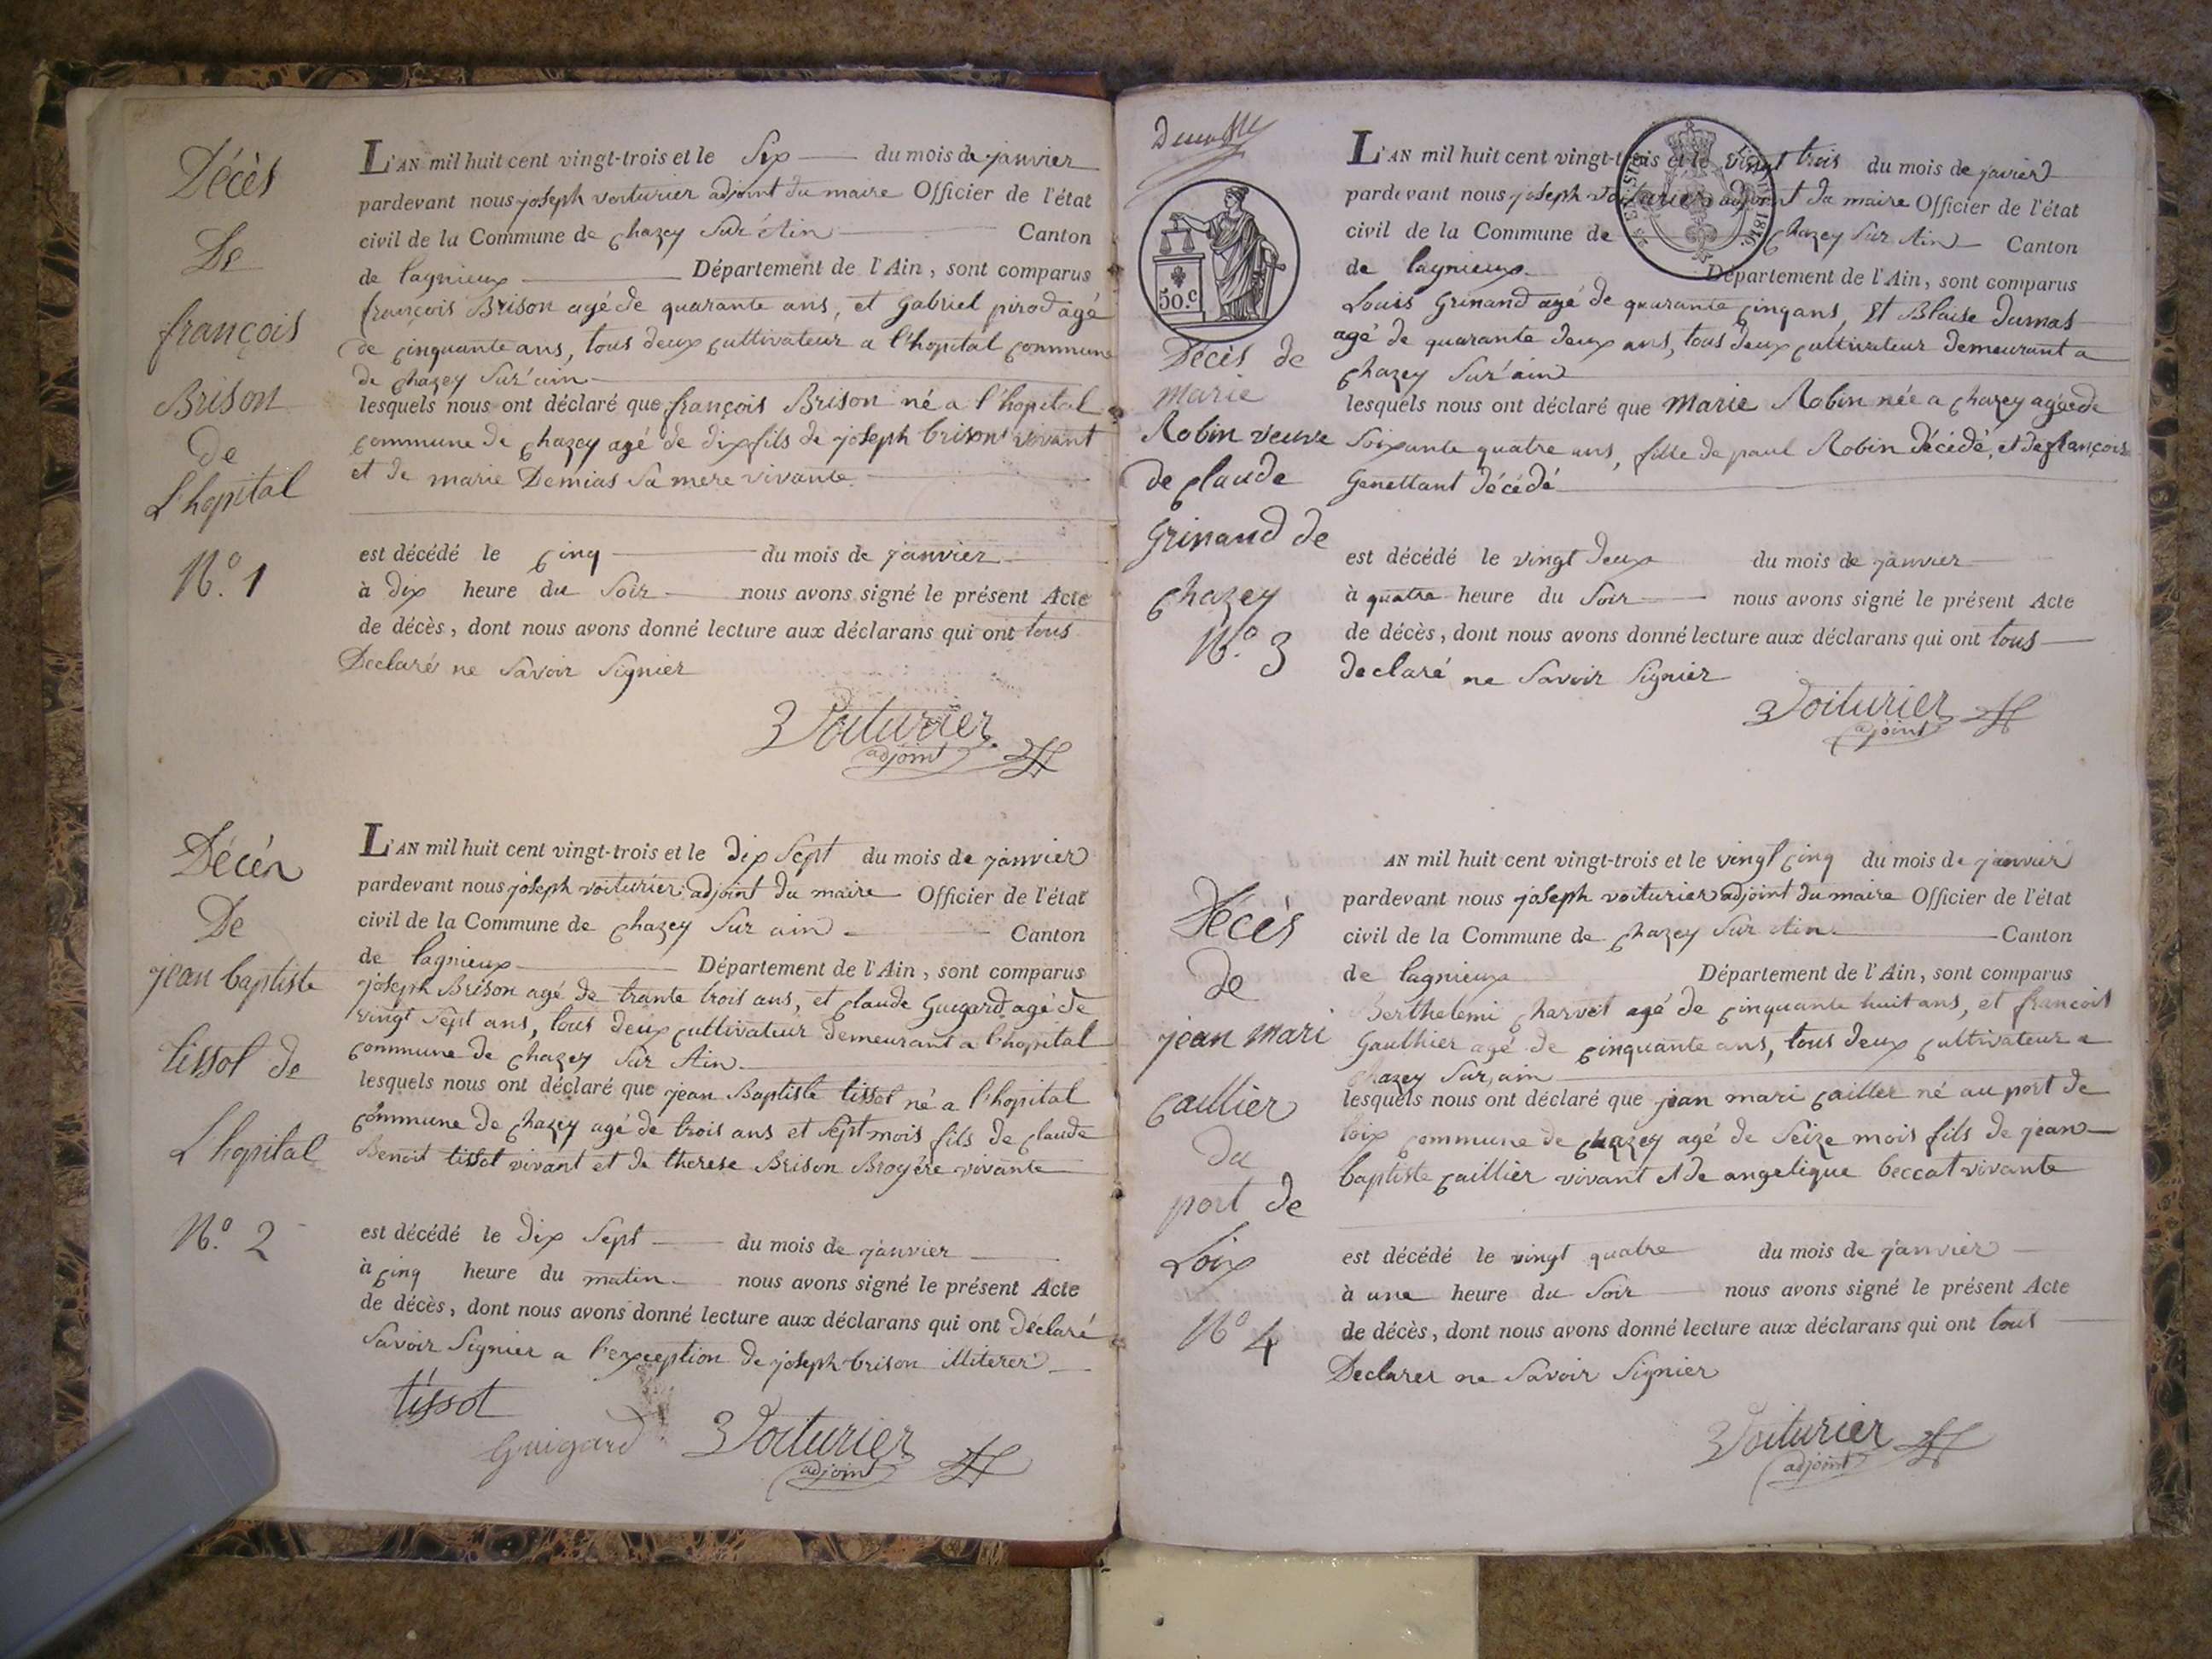 Décès
De
françois
Brison
de
L'hopital
N.º 1
L'AN mil huit cent vingt-trois et le Six du mois de janvier
pardevant nous joseph voiturier adjoint du maire Officier de l'état
civil de la Commune de chazey Sur Ain Canton
de lagnieux Département de l'Ain, sont comparus
françois Brison agé de quarante ans, et gabriel pirod agé
de cinquante ans, tous deux cultivateur a l'hopital commune
de chazey Sur ain
lesquels nous ont déclaré que françois Brison né a l'hopital
commune de chazey agé de dix fils de joseph brison vivant
et de marie Demias Sa mere vivante
est décédé le cinq du mois de janvier
à dix heure du Soir nous avons signé le présent Acte
de décès, dont nous avons donné lecture aux déclarans qui ont tous
Declaré ne Savoir Signier
Voiturier
adjoint
Décès
De
jean baptiste
tissot de
L'hopital
N.º 2
L'AN mil huit cent vingt-trois et le dix Sept du mois de janvier
pardevant nous joseph voiturier adjoint du maire Officier de l'état
civil de la Commune de chazey Sur ain Canton
de lagnieux Département de l'Ain, sont comparus
joseph Brison agé de trante trois ans, et claude Guigard agé de
vingt Sept ans, tous deux cultivateur demeurant a l'hopital
commune de chazey Sur Ain
lesquels nous ont déclaré que jean Baptiste tissot né a l'hopital
commune de chazey agé de trois ans et Sept mois fils de claude
Benoit tissot vivant et de therese Brison Brogére vivante
est décédé le dix Sept du mois de janvier
à cinq heure du matin nous avons signé le présent Acte
de décès, dont nous avons donné lecture aux déclarans qui ont déclaré
Savoir Signier a l'exception de joseph brison illiterer
tissot
Guigard Voiturier
adjoint
50.c
1816
Décès de
marie
Robin veuve
de claude
Grinand de
chazey
N.º 3
L'AN mil huit cent vingt-trois et le vingt trois du mois de janvier
pardevant nous joseph voiturier adjoint du maire Officier de l'état
civil de la Commune de chazey Sur Ain Canton
de lagnieux Département de l'Ain, sont comparus
Louis Grinand agé de quarante cinq ans, Et Blaise dumas
agé de quarante deux ans, tous deux cultivateur demeurant a
chazey Sur ain
lesquels nous ont déclaré que Marie Robin née a chazey agée de
Soixante quatre ans, fille de paul Robin décédé, et de françoise
Genettant décédé
est décédé le vingt deux du mois de janvier
à quatre heure du Soir nous avons signé le présent Acte
de décès, dont nous avons donné lecture aux déclarans qui ont tous
declaré ne Savoir Signier
Voiturier
adjoint
Décés
de
jean mari
caillier
du
port de
Loix
N.º 4
AN mil huit cent vingt-trois et le vingt cinq du mois de janvier
pardevant nous joseph voiturier adjoint du maire Officier de l'état
civil de la Commune de chazey Sur Ain Canton
de lagnieux Département de l'Ain, sont comparus
Berthelemi charvet agé de cinquante huit ans, et francois
Gaulthier agé de cinquante ans, tous deux cultivateur a
chazey Sur ain
lesquels nous ont déclaré que jean mari cailler né au port de
loix commune de chazey agé de Seize mois fils de jean
baptiste caillier vivant et de angelique beccat vivante
est décédé le vingt quatre du mois de janvier
à une heure du Soir nous avons signé le présent Acte
de décès, dont nous avons donné lecture aux déclarans qui ont tous
Declarer ne Savoir Signier
Voiturier
adjoint